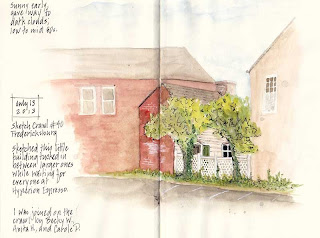 Sunny early,
gave way to
dark clouds,
low to mid 60s.
only 13
Sketch Crawl #40
Fredericksburg
Sketched this little
building tucked in
between larger ones
while waiting for
everyone at
Hyperion Espresso.
I was joined on the
crawl by Becky W,
Anita R, and Carole P!